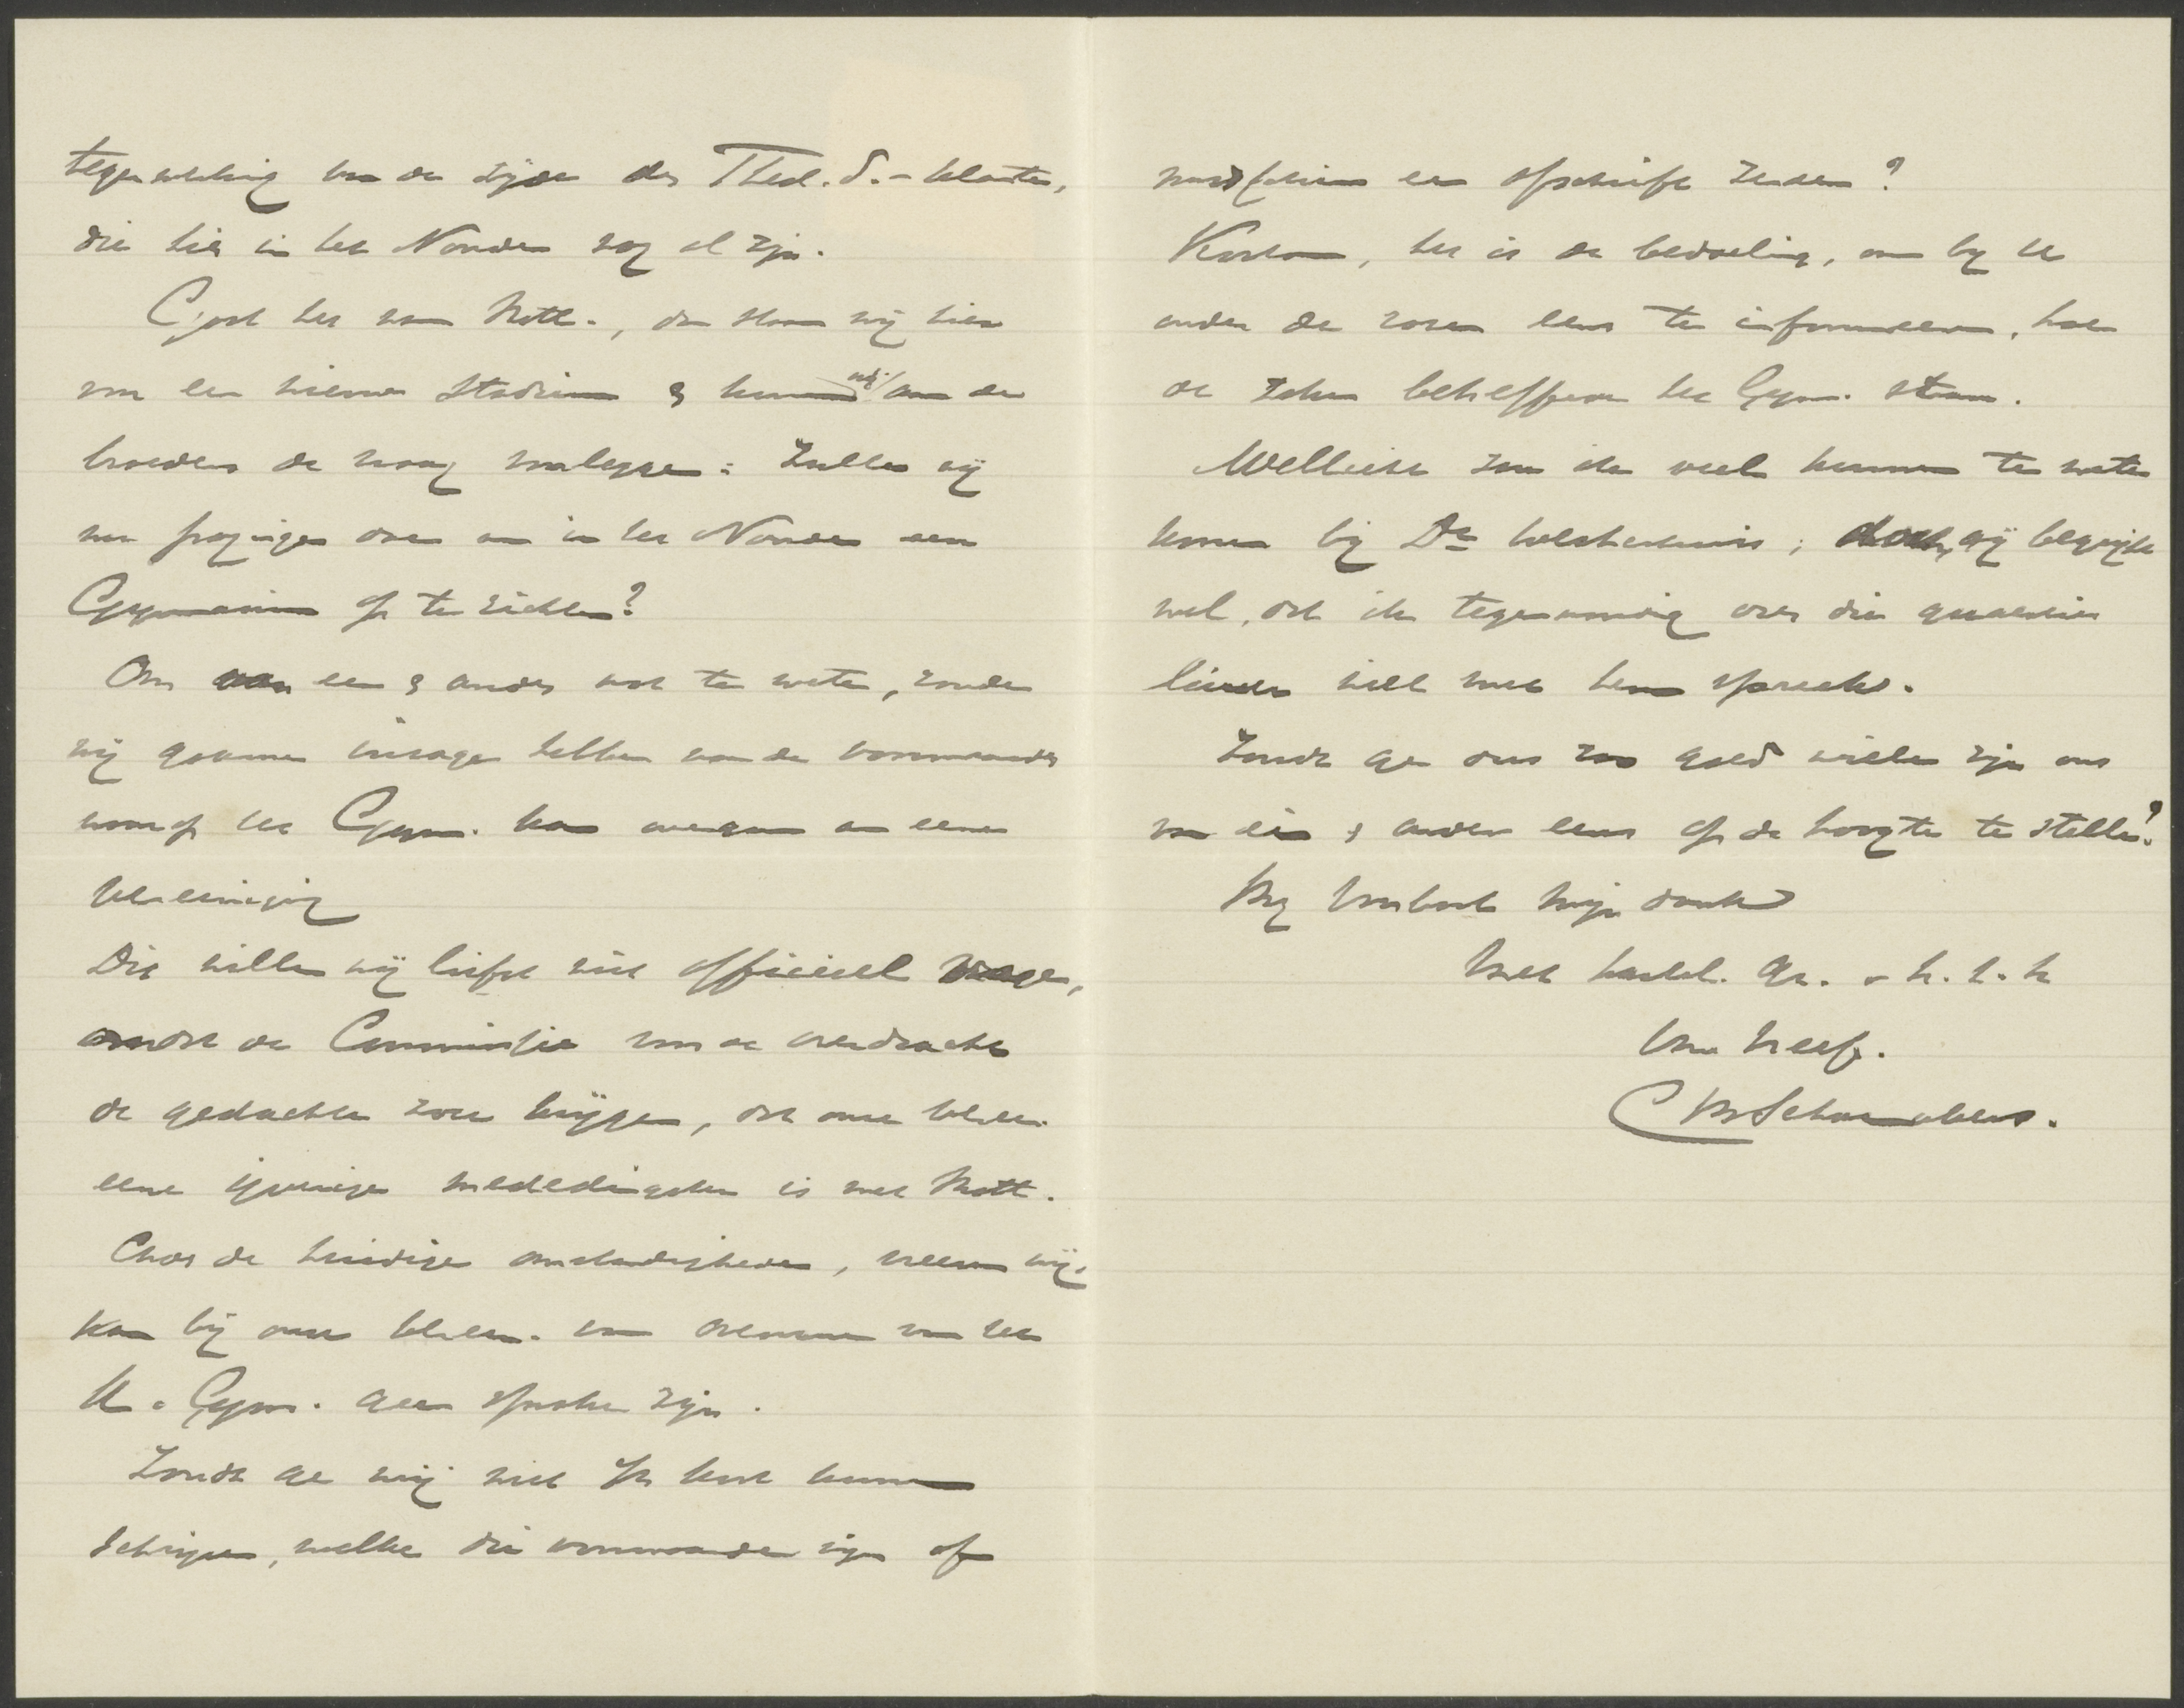 tegenwerking van de zijde der Theol. S.-klanten,
die hier in het Noorden nog al zijn.
Gaat het naar Rott., dan staan wij hier
voor een nieuw stadium & kunnen wij aan de
broeders de vraag voorleggen: Zullen wij
nu pogingen doen om in het Noorden een
Gymnasium op te richten?
Om van een & ander wat te weten, zouden
wij gaarne inzage hebben van de voorwaarden
waarop het Gym. kan overgaan aan eene
Vereeniging
Dit willen wij liefst niet officieel vragen,
omdat de Commissie van de overdracht
de gedachte zou krijgen, dat onze Vereen.
eene ijverige mededingster is met Rott.
Door de huidige omstandigheden, meenen wij,
kan bij onze Vereen. van overname van het
K. Gym. geen sprake zijn.
Zoudt ge mij niet in 't kort kunnen
schrijven, welke die voorwaarden zijn of
misschien een afschrift zenden?
Kortom, het is de bedoeling, om bij U
onder de rozen eens te informeeren, hoe
de zaken betreffende het Gym. staan.
Wellicht zou ik veel kunnen te weten
komen bij Dr Westerhuis; doch, gij begrijpt
wel, dat ik tegenwoordig over die quaestie
liever niet met hem spreek.
Zoudt ge dus zoo goed willen zijn ons
van een & ander eens op de hoogte te stellen?
Bij voorbaat mijn dank
Met hartel. gr. v. h. t. h
Uw Neef.